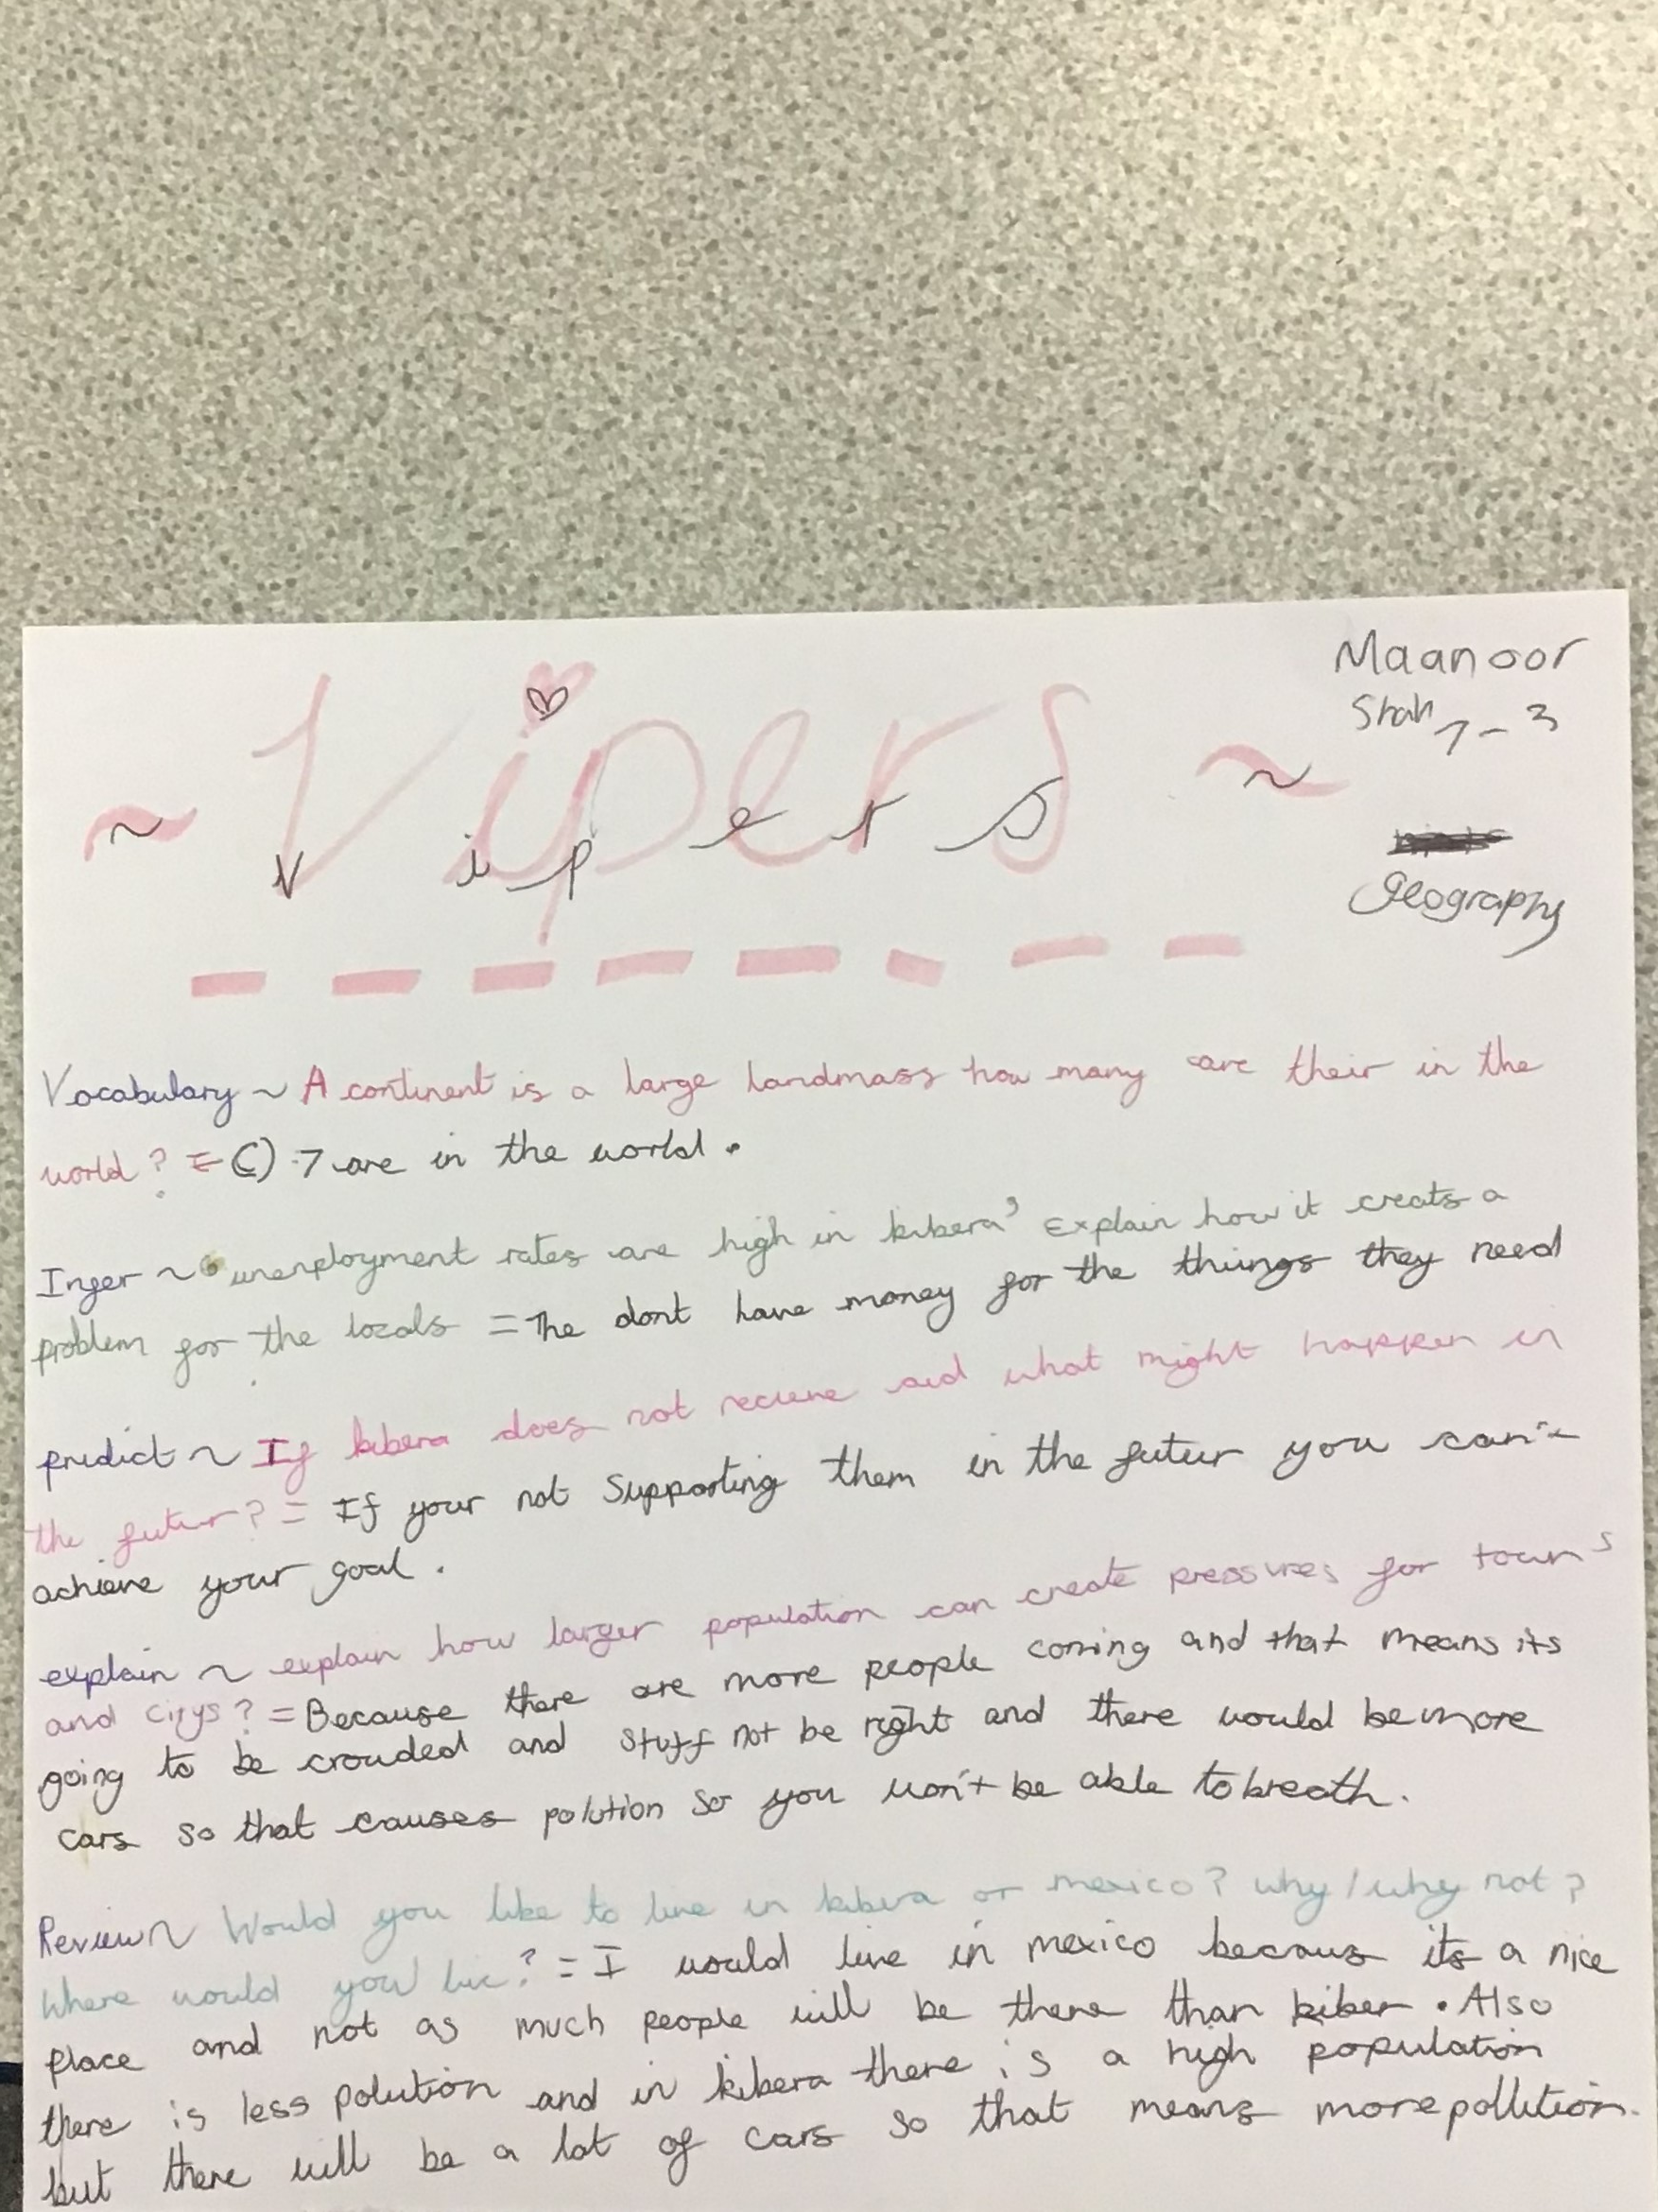 Maanoor
Shah 7-3
~ Vipers ~
v i p e r s
geography
Vocabulary ~ A continent is a large landmass how many are their in the
world? = C) 7 are in the world.
Infer ~ unemployment rates are high in kibera' Explain how it creats a
problem for the locals = The dont have money for the things they need
predict ~ If kibera does not recieve aid what might happen in
the futur? = If your not supporting them in the futur you can't
achieve your goal.
explain ~ explain how larger population can create pressures for towns
and citys? = Because there are more people coming and that means its
going to be crouded and stuff not be right and there would be more
cars so that causes polution so you won't be able to breath.
Review ~ Would you like to live in kibera or mexico? why/why not?
Where would you live? = I would live in mexico becaus its a nice
place and not as much people will be there than kiber. Also
there is less polution and in kibera there is a high population
but there will be a lot of cars so that means more pollution.